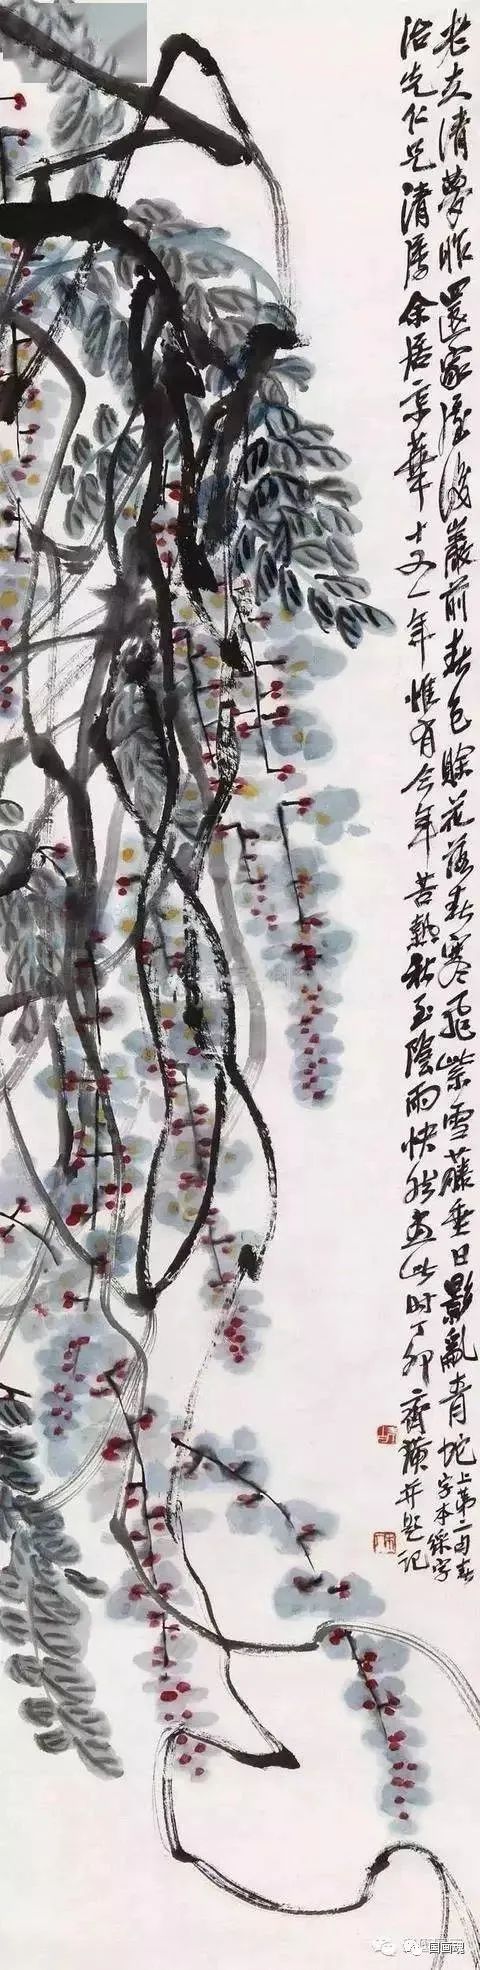 老夫清夢昨還家屋後巖前春色賒花落春寒飛紫雪藤垂日影亂青蛇
上第二句春
字本綵字
治先仁兄清屬余居京華十又一年惟有今年苦熱秋至陰雨快然畫此時丁卯齊璜并題記
国画魂